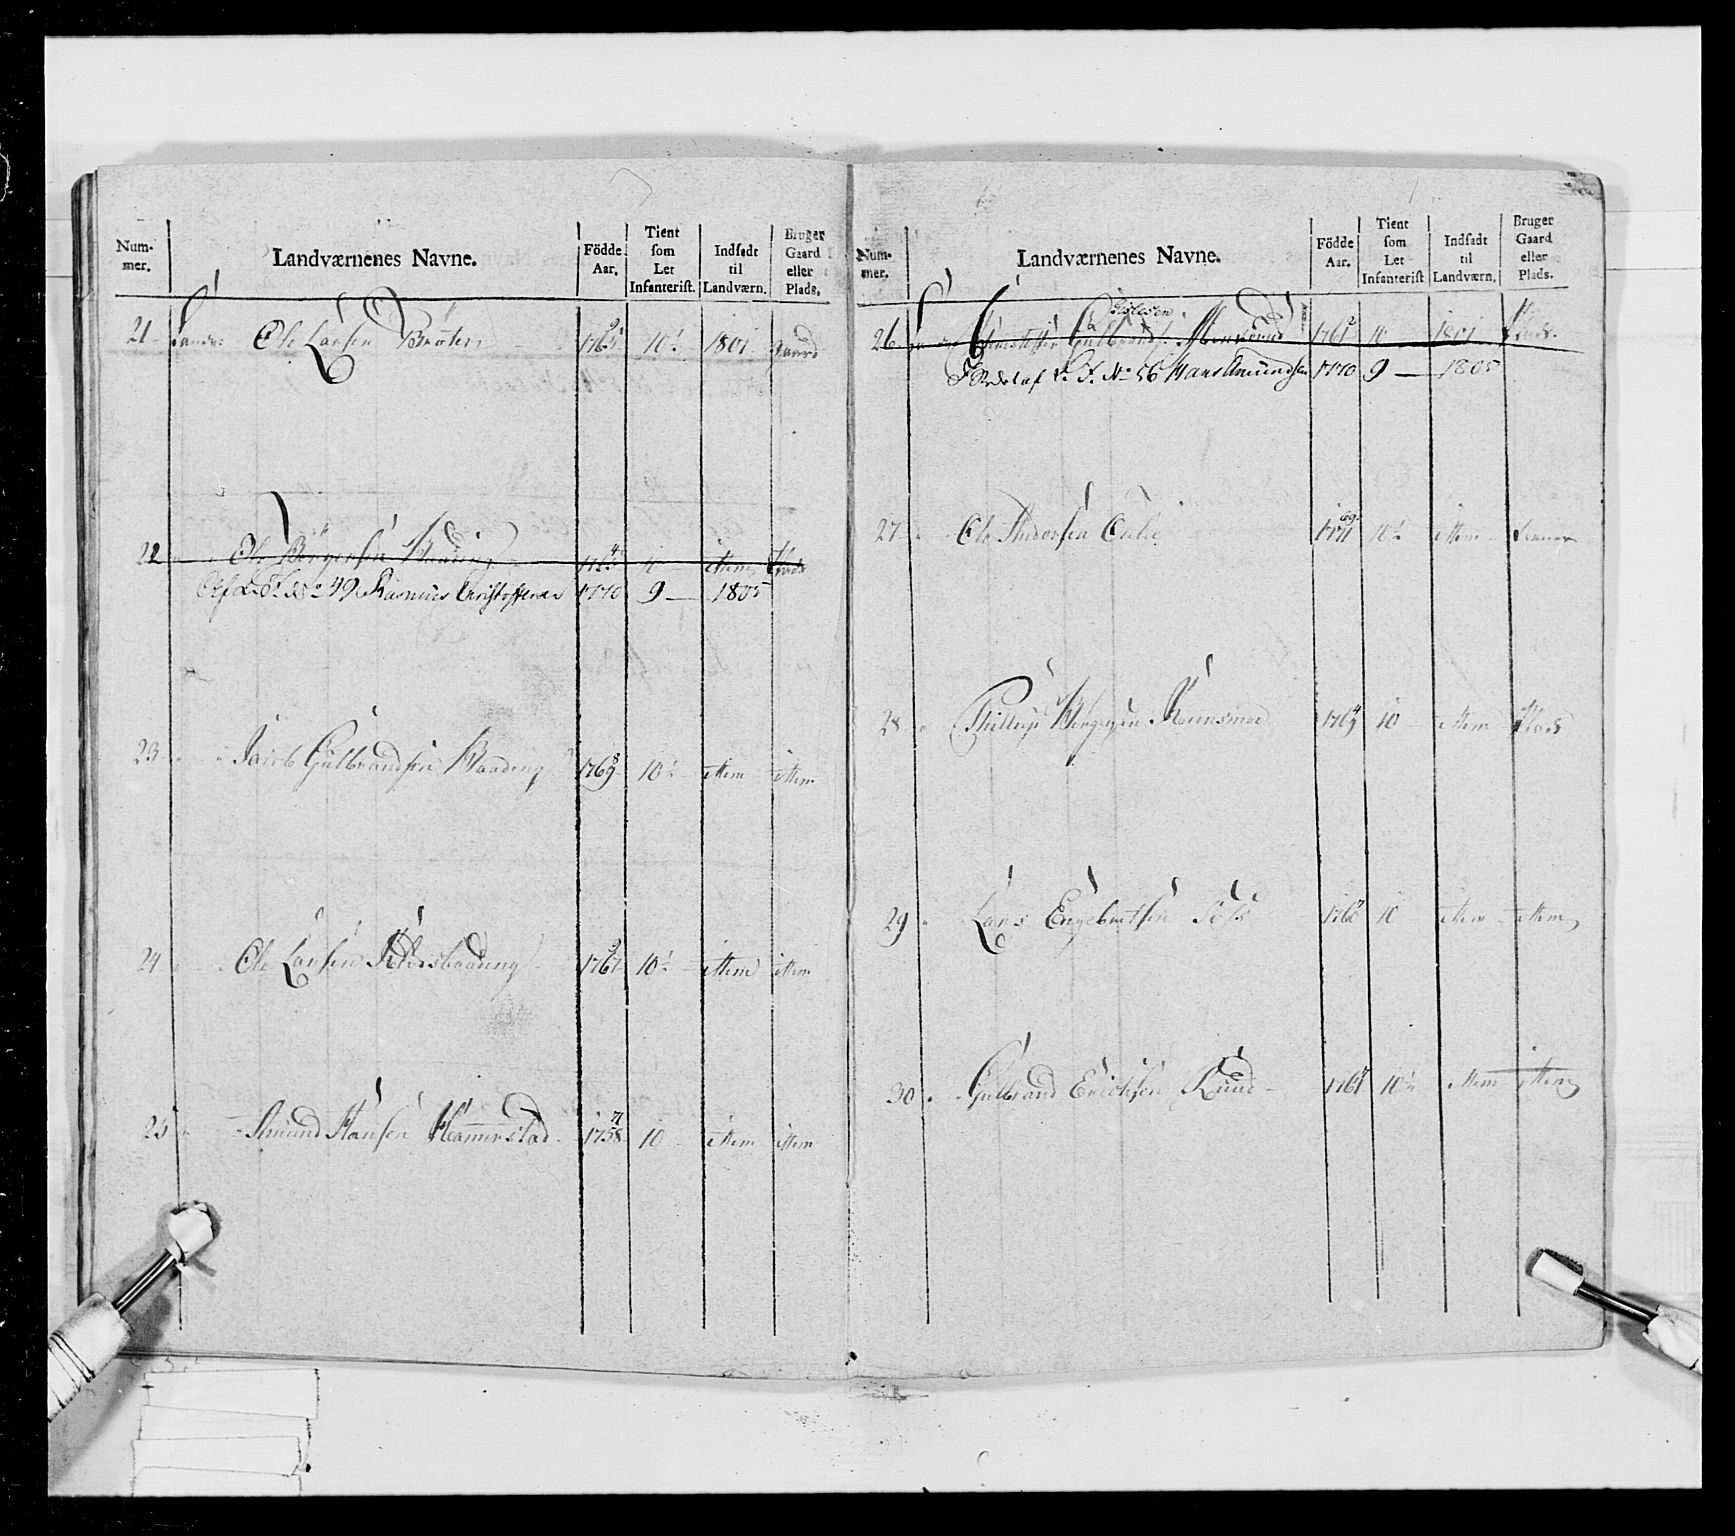 Num-
mer.
Landværnenes Navne.
Födde
Aar.
Tient
som
Let
Infanterist.
Indsadt
til
Landværn.
Bruger
Gaard
eller
Plads.
21 Ole Larsen Bröten 1765 10½ 1801 gaard
22 Ole Börgersen Baading item Plads
Af L: I: No 49 Rasmus Christoffersen 1770 9 — 1805
23 Jacob Gulbrandsen Baading 1769 10½ item item
24 Ole Larsen 1767 10½ item item
25 Amund Hansen Hammerstad 1758 10 item item
Num-
mer.
Landværnenes Navne.
Födde
Aar.
Tient
som
Let
Infanterist
Indsadt
til
Landværn.
Bruger
Gaard
eller
Plads.
Gislesen
26 Christoffer Gulbrands: 1761 10 1801 Plads
I Stedet af L. I. No 56 Hans Amundsen 1770 9 — 1805
27 Ole Andersen 1771 10½ item
28 Phillip 1769 10 item Plads
29 Lars Engebretsen 1760 10 item item
30 Gulbrand Erichsen Ruud 1767 10½ item item